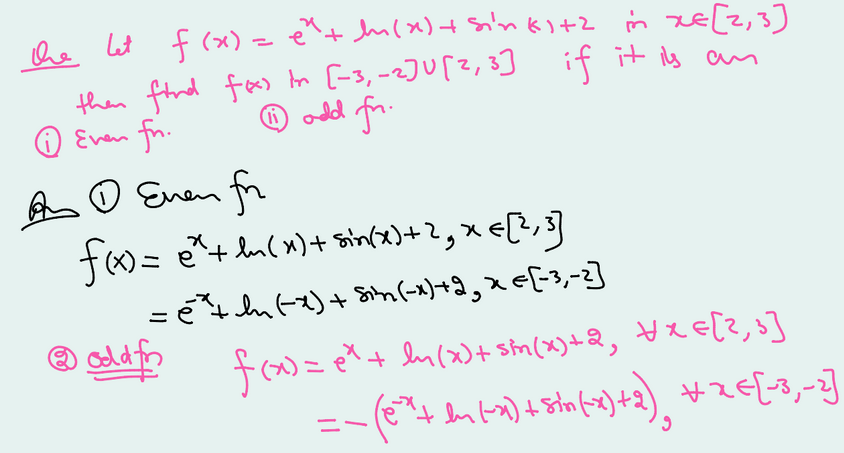 Que Let f(x) = e^x + ln(x) + sin(x) + 2 in x∈[2,3]
then find f(x) in [-3,-2]∪[2,3] if it is an
(i) Even fn. (ii) odd fn.
An (1) Even fn
f(x) = e^x + ln(x) + sin(x) + 2, x∈[2,3]
= e^-x + ln(-x) + sin(-x) + 2, x∈[-3,-2]
(2) odd fn f(x) = e^x + ln(x) + sin(x) + 2, ∀ x∈[2,3]
= -(e^-x + ln(-x) + sin(-x) + 2), ∀ x∈[-3,-2]